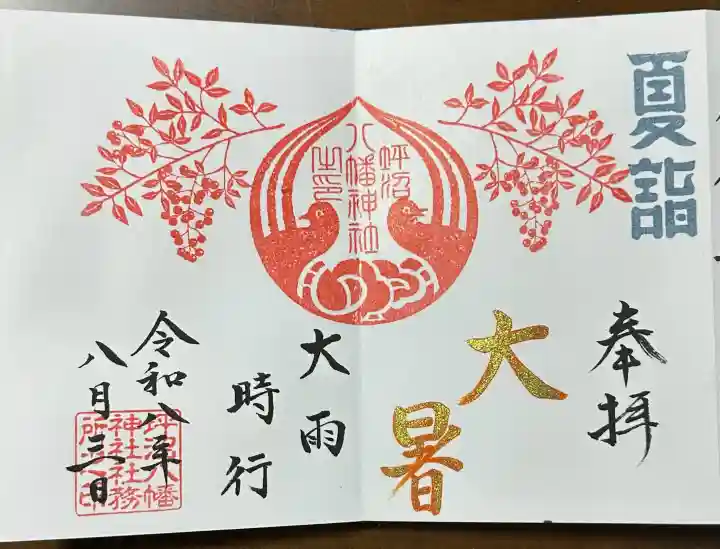 夏詣
奉拝
大暑
坪沼
八幡神社
之印
大雨
時行
令和八年
八月三日
坪沼八幡
神社社務
所之印